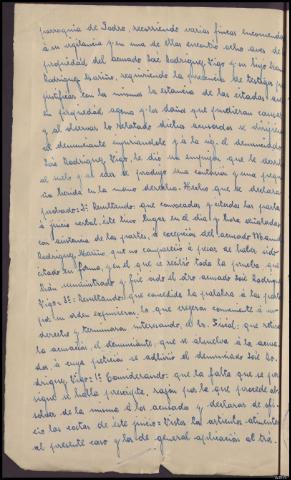 parroquia de Isdro, recorriendo varias fincas encomendadas
a su vigilancia y en una de ellas encontro ocho aves de
propiedad, del acusado José Rodríguez Vigo y su hijo Manuel
Rodríguez Mariño, requiriendo la presencia de testigos para
justificar con la misma la estancia de las citadas aves
en propiedad agena y los daños que pudieran causar
y al observar lo relatado dichos acusados se dirigieron
al denunciante injuriandole y a la vez el denunciado
José Rodríguez Vigo, le dió un empujon que le derribó
al suelo y se le produjo una contusion y una peque-
ña herida en la mano derecha. Hecho que se declara
probado = 2º Resultando: que convocadas y citadas las partes
á juicio verbal, este tuvo lugar en el dia y hora señaladas
con asistencia de las partes, a excepción del acusado Manuel
Rodríguez Mariño que no compareció á pesar de haber sido
citado en forma, y en el que se recibió toda la prueba que
han suministrado y fué oido el otro acusado José Rodríguez
Vigo = 3º: Resultando: que concedida la palabra á las partes
por su orden expusieron lo que creyeron conveniente á su
derecho y terminaron interesando, el Sr. Fiscal: que retira
la acusación, el denunciante, que se absuelva á los acusa-
dos, á cuya peticion se adhirió el denunciado José Ro-
dríguez Vigo = 1º Considerando: que la falta que se per-
sigue se halla prescripta, razón por la que procede ab-
solver de la misma á los acusados y declarar de ofi-
cio las costas de este juicio = Vistos los artículos atinentes
al presente caso y los de general aplicación al tra-